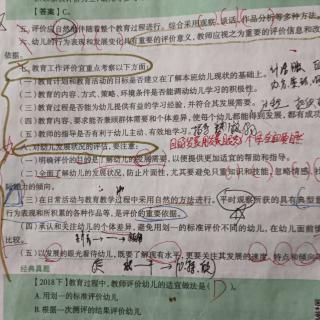 【答案】C。
五、评价应自然地伴随着整个教育过程进行。综合采用观察、谈话、作品分析等多种方法。
六、幼儿的行为表现和发展变化具有重要的评价意义,教师应视之为重要的
七、教育工作评价宜重点考察以下方面:
(一)教育计划和教育活动的目标是否建立在了解本班幼儿现状的基础上。
(二)教育的内容、方式、策略、环境条件是否能调动幼儿学习的积极性。
(三)教育过程是否能为幼儿提供有益的学习经验,并符合其发展需要。
(四)教育内容、要求能否兼顾群体需要和个体差异,使每个幼儿都能得到发展,都有成功
(五)教师的指导是否有利于幼儿主动、有效地学习。
八、对幼儿发展状况的评估,要注意:
(一)明确评价的目的是了解幼儿的发展需要,以便提供更加适宜的帮助和指导。
(二)全面了解幼儿的发展状况,防止片面性,尤其要避免只重知识和技能,忽略情感、社
际能力的倾向。
(三)在日常活动与教育教学过程中采用自然的方法进行。平时观察所获的具有典型
行为表现和所积累的各种作品等,是评价的重要依据。
(四)承认和关注幼儿的个体差异,避免用划一的标准评价不同的幼儿,在幼儿面前慎
比较。
(五)以发展的眼光看待幼儿,既要了解现有水平,更要关注其发展的速度、特点和倾向
经典真题
【2018下】教育过程中,教师评价幼儿的适宜做法是( D )。
A.用划一的标准评价幼儿
B.根据一次测评的结果评价幼儿